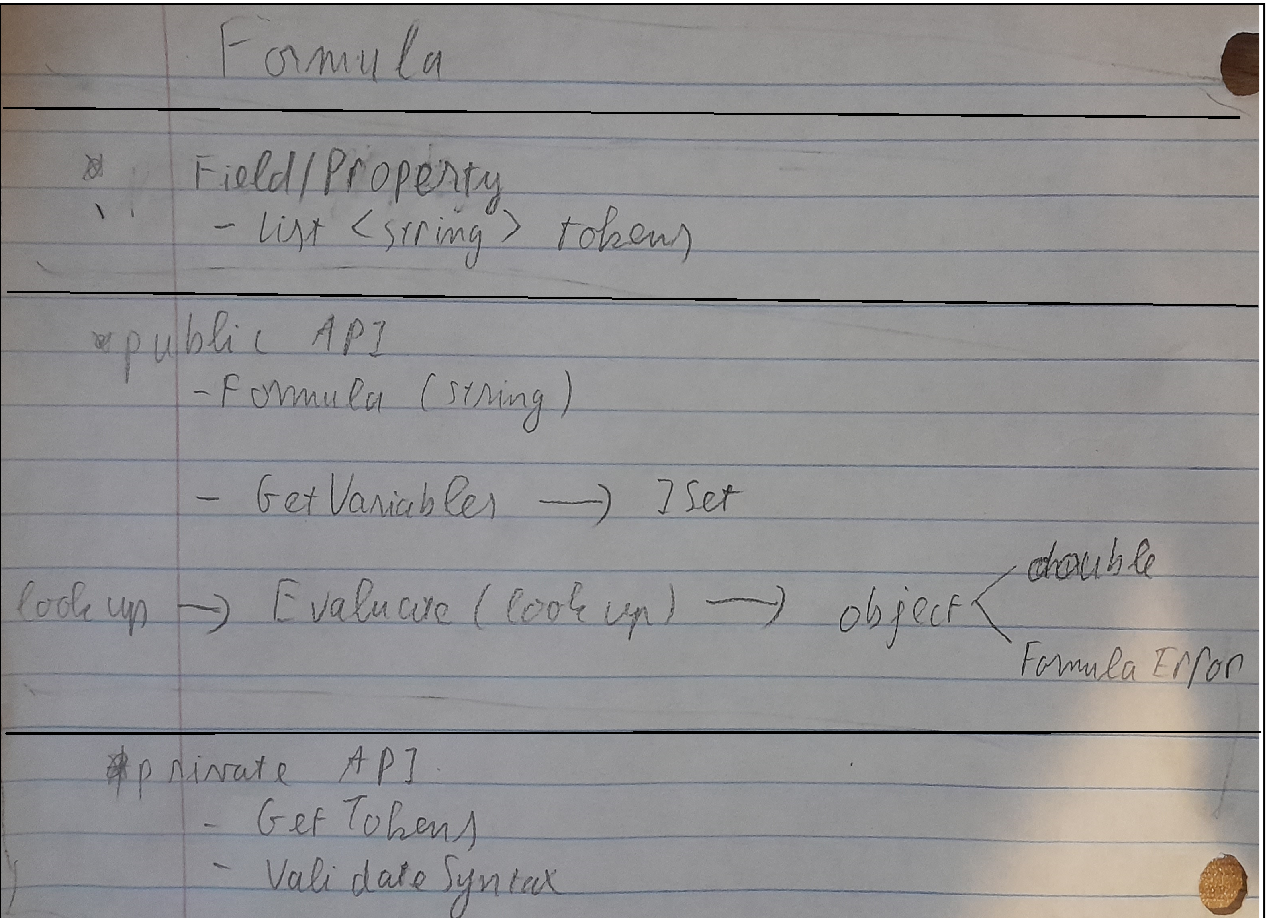 Formula
* Field/Property
- List <string> tokens
*public API
- Formula (string)
- GetVariables → ISet
lookup → Evaluate (lookup) → object < double
Formula Error
*private API
- GetTokens
- ValidateSyntax